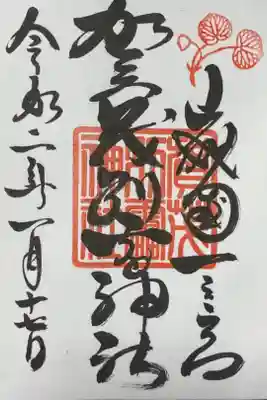 山城國一之宮
加茂別雷神社
令和二年一月十七日